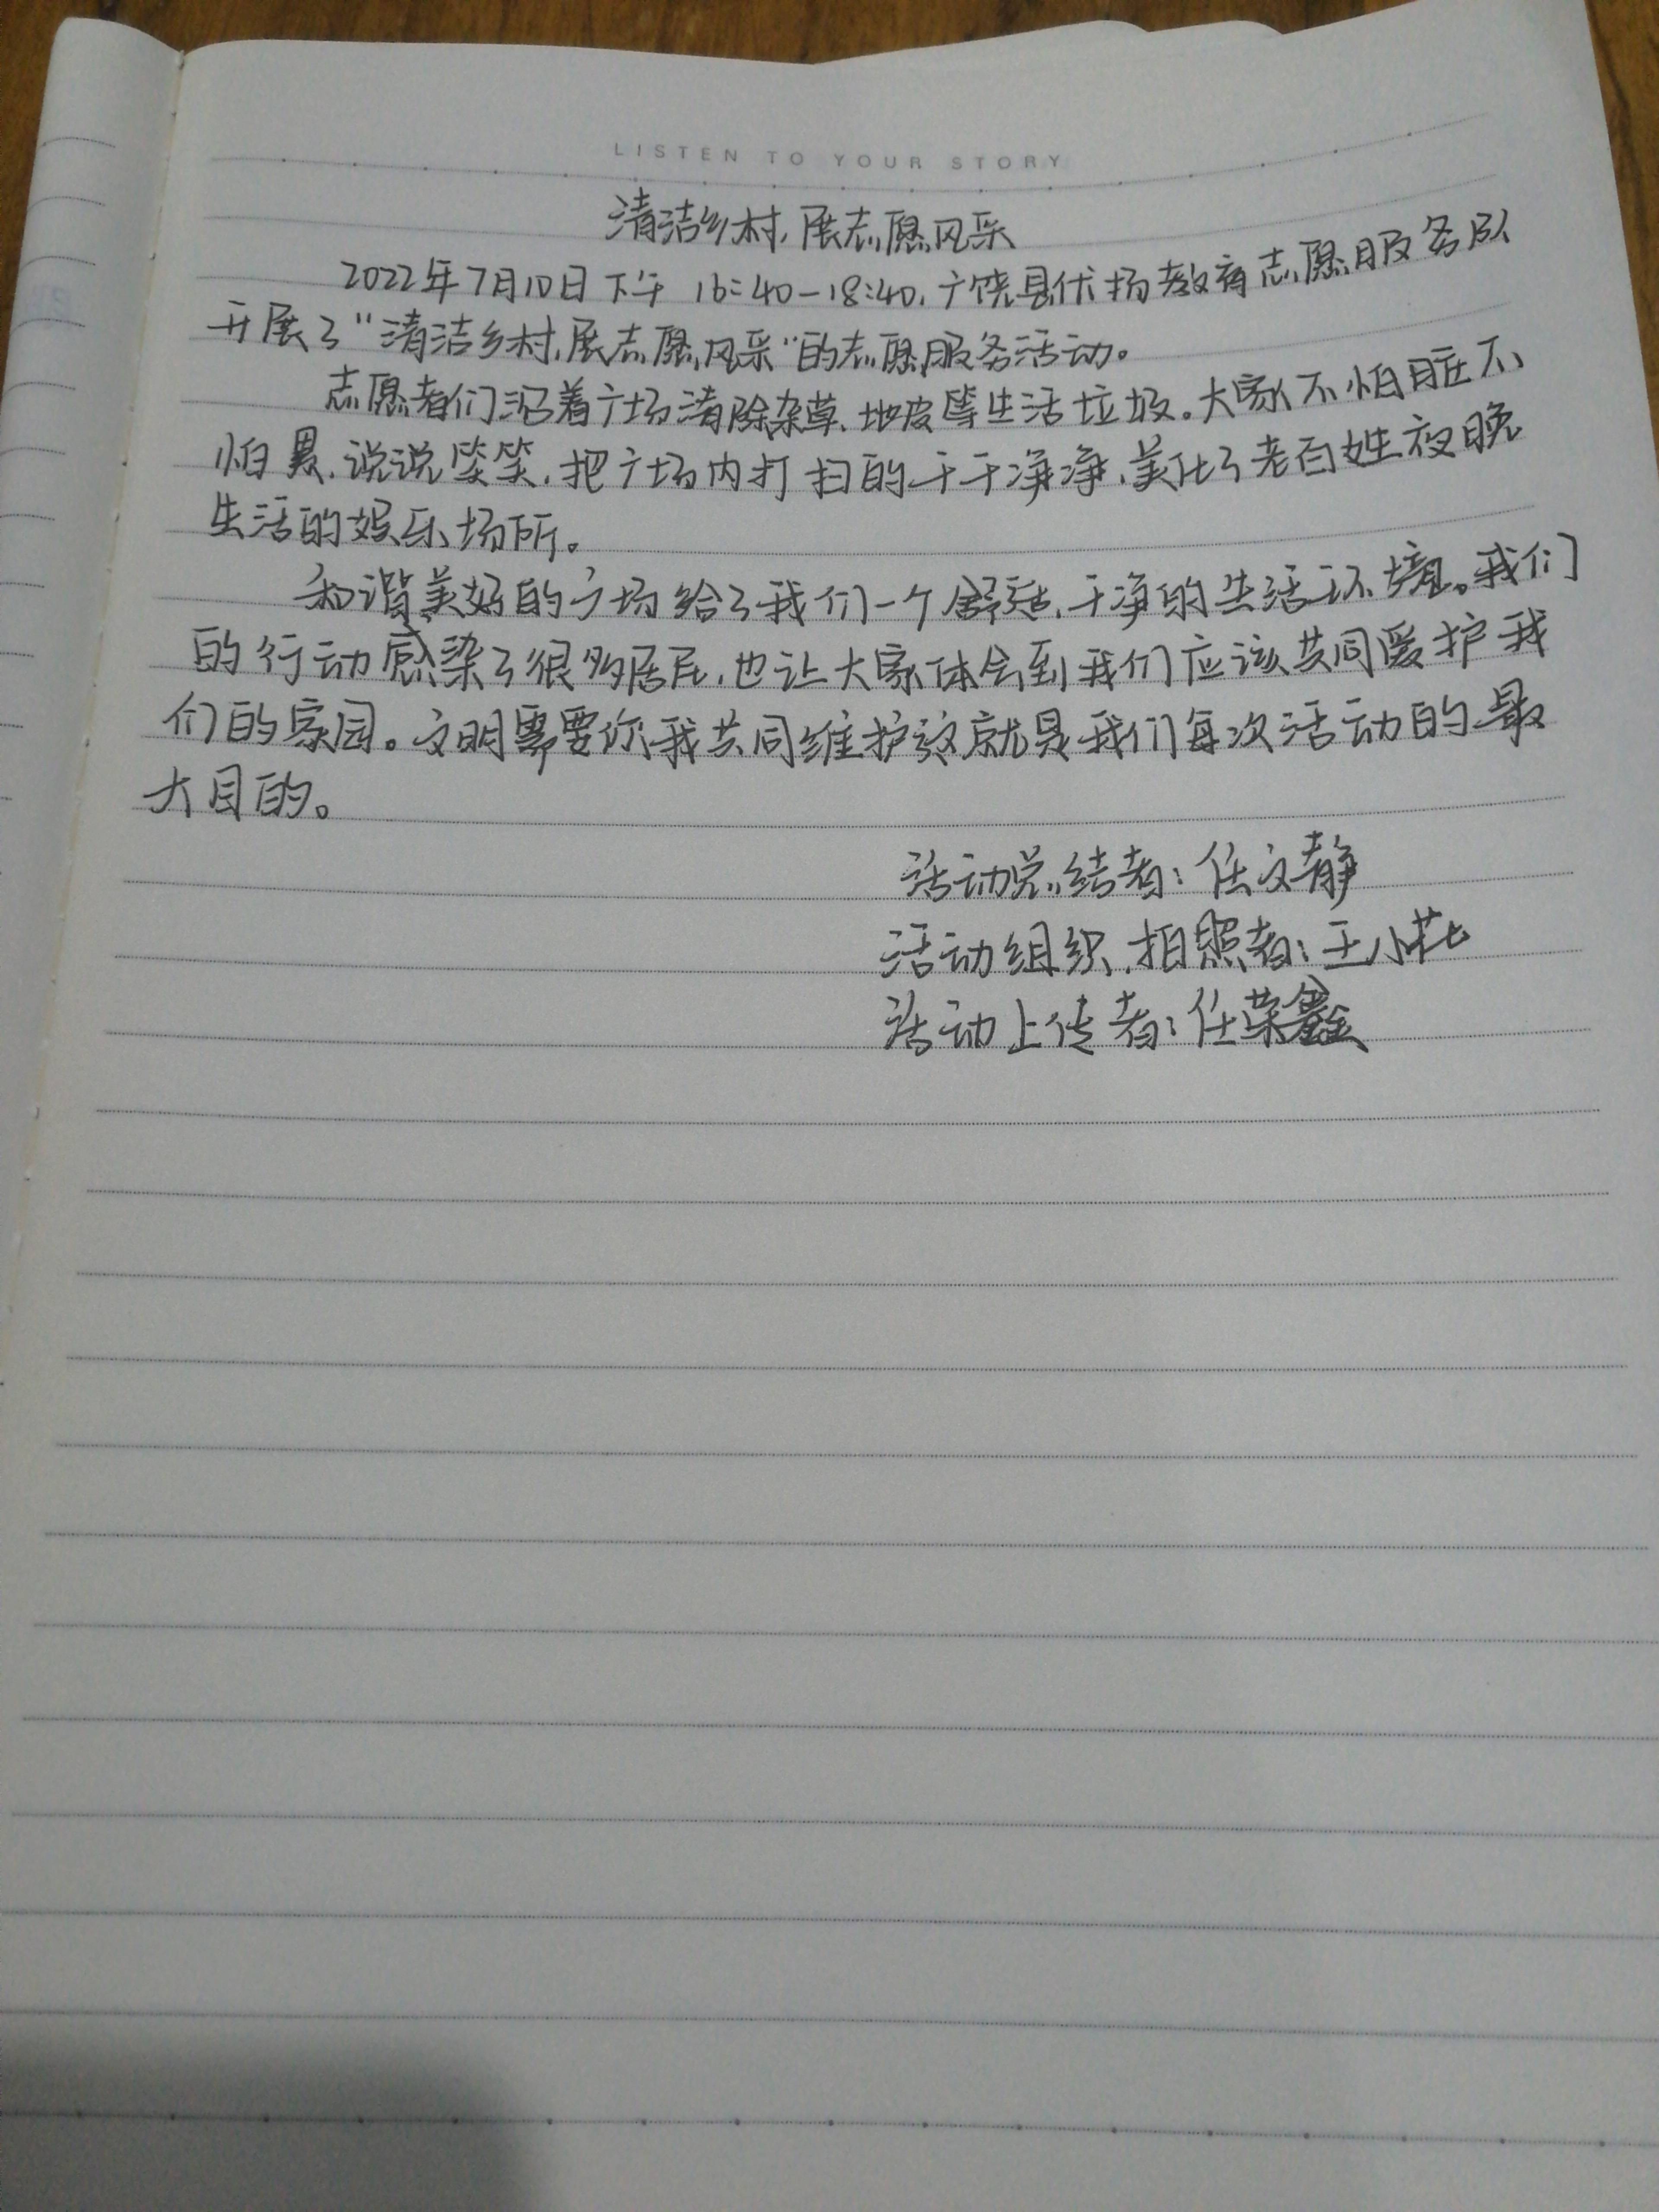 LISTEN TO YOUR STORY
清洁乡村,展志愿风采
2022年7月10日下午 16:40-18:40,广饶县优扬教育志愿服务队
开展了"清洁乡村,展志愿风采"的志愿服务活动。
志愿者们沿着广场清除杂草、地皮等生活垃圾。大家不怕脏不
怕累,说说笑笑,把广场内打扫的干干净净,美化了老百姓夜晚
生活的娱乐场所。
和谐美好的广场给了我们一个舒适、干净的生活环境。我们
的行动感染了很多居民,也让大家体会到我们应该共同爱护我
们的家园。文明需要你我共同维护这就是我们每次活动的最
大目的。
活动总结者:任文静
活动组织、拍照者:王小花
活动上传者:任荣鑫